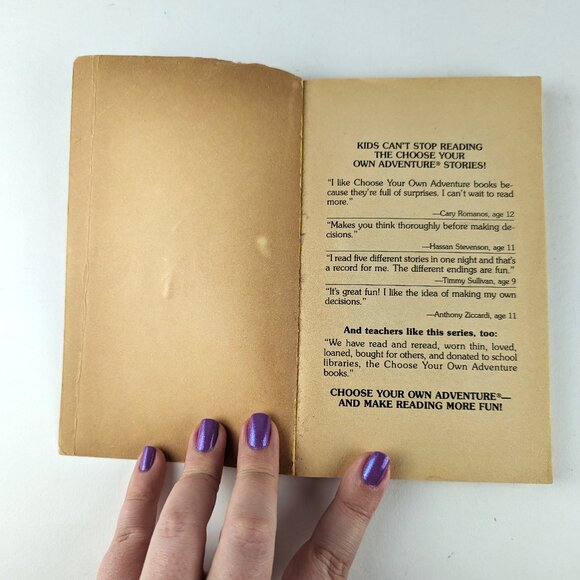 KIDS CAN'T STOP READING
THE CHOOSE YOUR
OWN ADVENTURE® STORIES!
"I like Choose Your Own Adventure books be-
cause they're full of surprises. I can't wait to read
more."
—Cary Romanos, age 12
"Makes you think thoroughly before making de-
cisions."
—Hassan Stevenson, age 11
"I read five different stories in one night and that's
a record for me. The different endings are fun."
—Timmy Sullivan, age 9
"It's great fun! I like the idea of making my own
decisions."
—Anthony Ziccardi, age 11
And teachers like this series, too:
"We have read and reread, worn thin, loved,
loaned, bought for others, and donated to school
libraries, the Choose Your Own Adventure
books."
CHOOSE YOUR OWN ADVENTURE®—
AND MAKE READING MORE FUN!